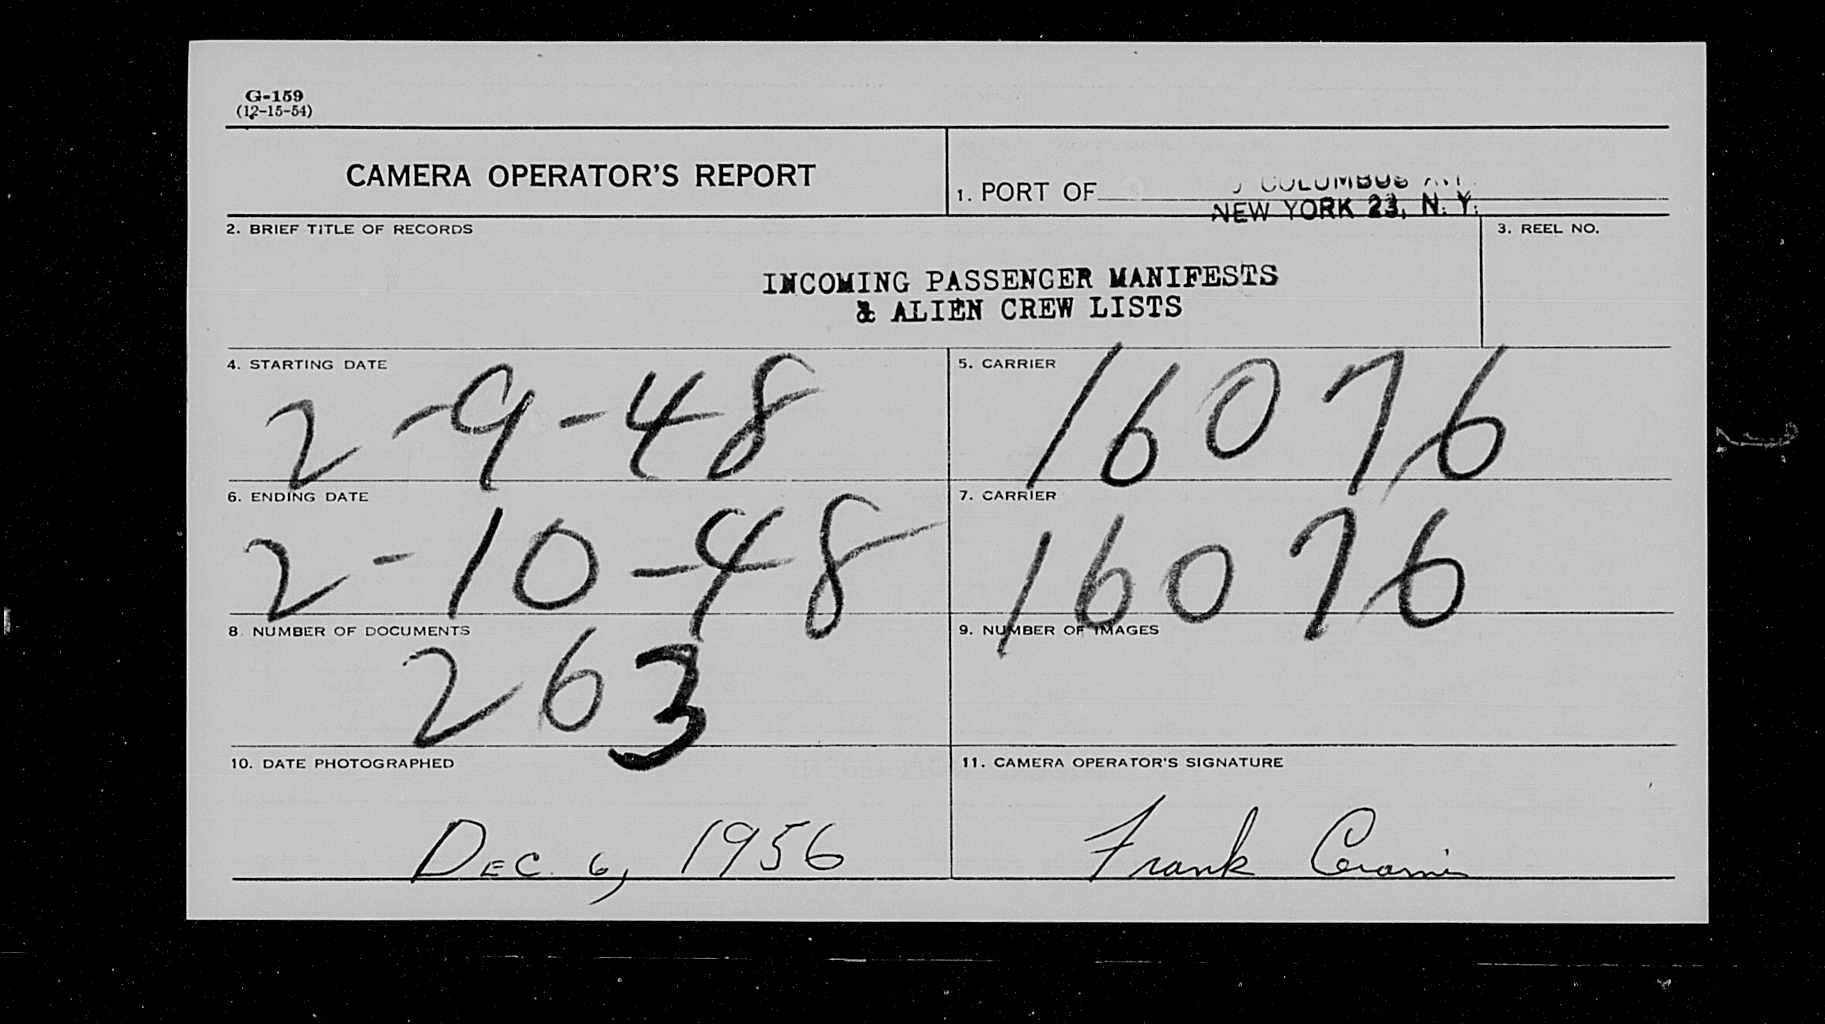 G-159
(12-15-54)
CAMERA OPERATOR'S REPORT
1. PORT OF
COLUMBUS AV.
NEW YORK 23, N. Y.
2. BRIEF TITLE OF RECORDS
3. REEL NO.
INCOMING PASSENGER MANIFESTS
& ALIEN CREW LISTS
4. STARTING DATE
2-9-48
5. CARRIER
16076
6. ENDING DATE
2-10-48
7. CARRIER
16076
8. NUMBER OF DOCUMENTS
263
9. NUMBER OF IMAGES
10. DATE PHOTOGRAPHED
DEC. 6, 1956
11. CAMERA OPERATOR'S SIGNATURE
Frank